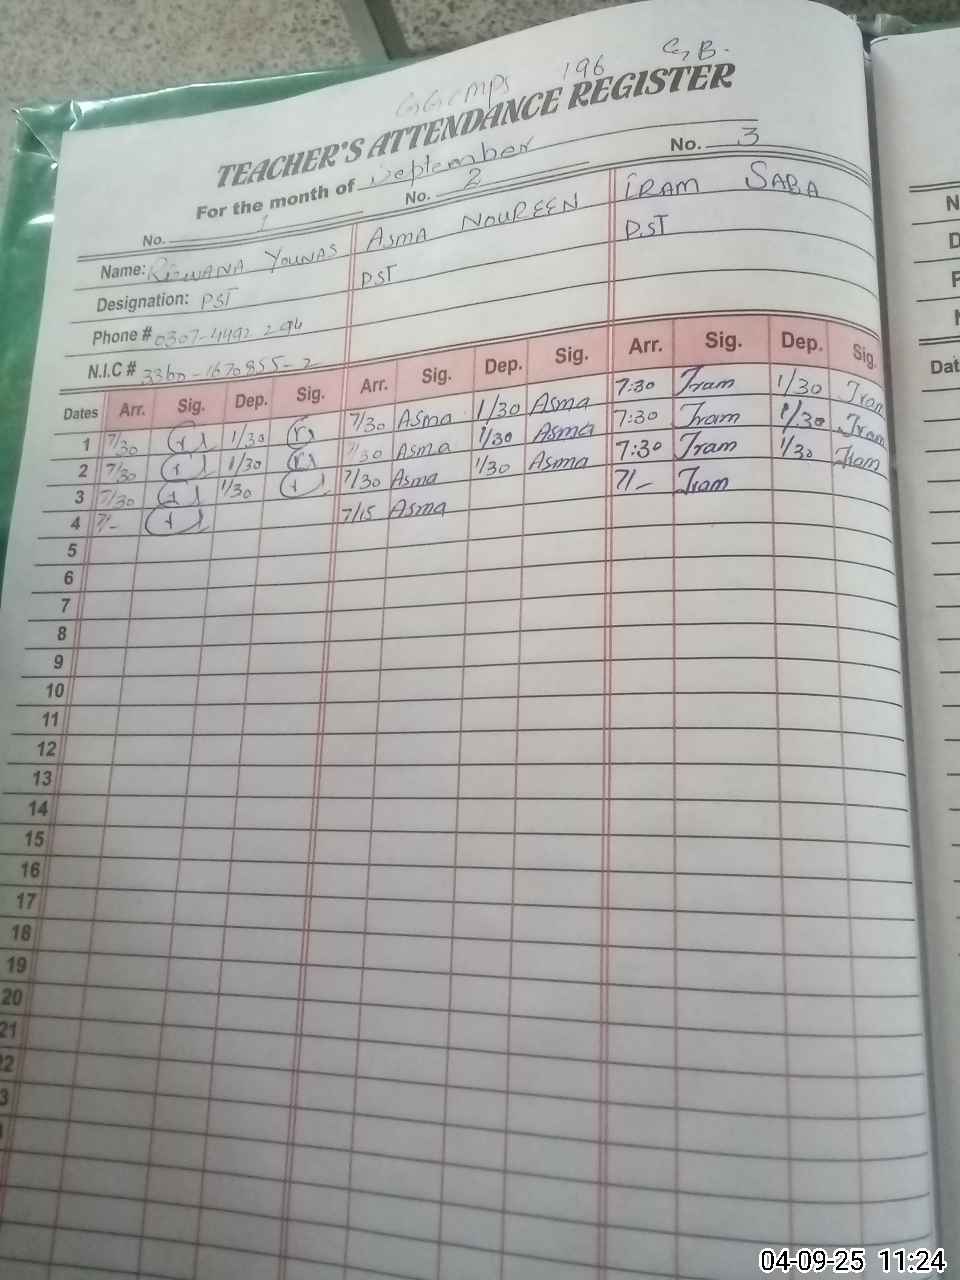 GGCMPS 196 G.B.
TEACHER'S ATTENDANCE REGISTER
For the month of September
No. 1 No. 2 No. 3
Name: RIZWANA YOUNAS ASMA NOUREEN IRAM SABA
Designation: PST PST PST
Phone # 0307-4492294
N.I.C #
Dates Arr. Sig. Dep. Sig. Arr. Sig. Dep. Sig. Arr. Sig. Dep. Sig.
1 7/30 1/30 7/30 Asma 1/30 Asma 7:30 Iram 1/30 Iram
2 7/30 1/30 7/30 Asma 1/30 Asma 7:30 Iram 1/30 Iram
3 7/30 1/30 7/30 Asma 1/30 Asma 7:30 Iram 1/30 Iram
4 7/- 7/15 Asma 7/- Iram
5
6
7
8
9
10
11
12
13
14
15
16
17
18
19
20
21
22
3
N
D
P
N
Dat
04-09-25 11:24